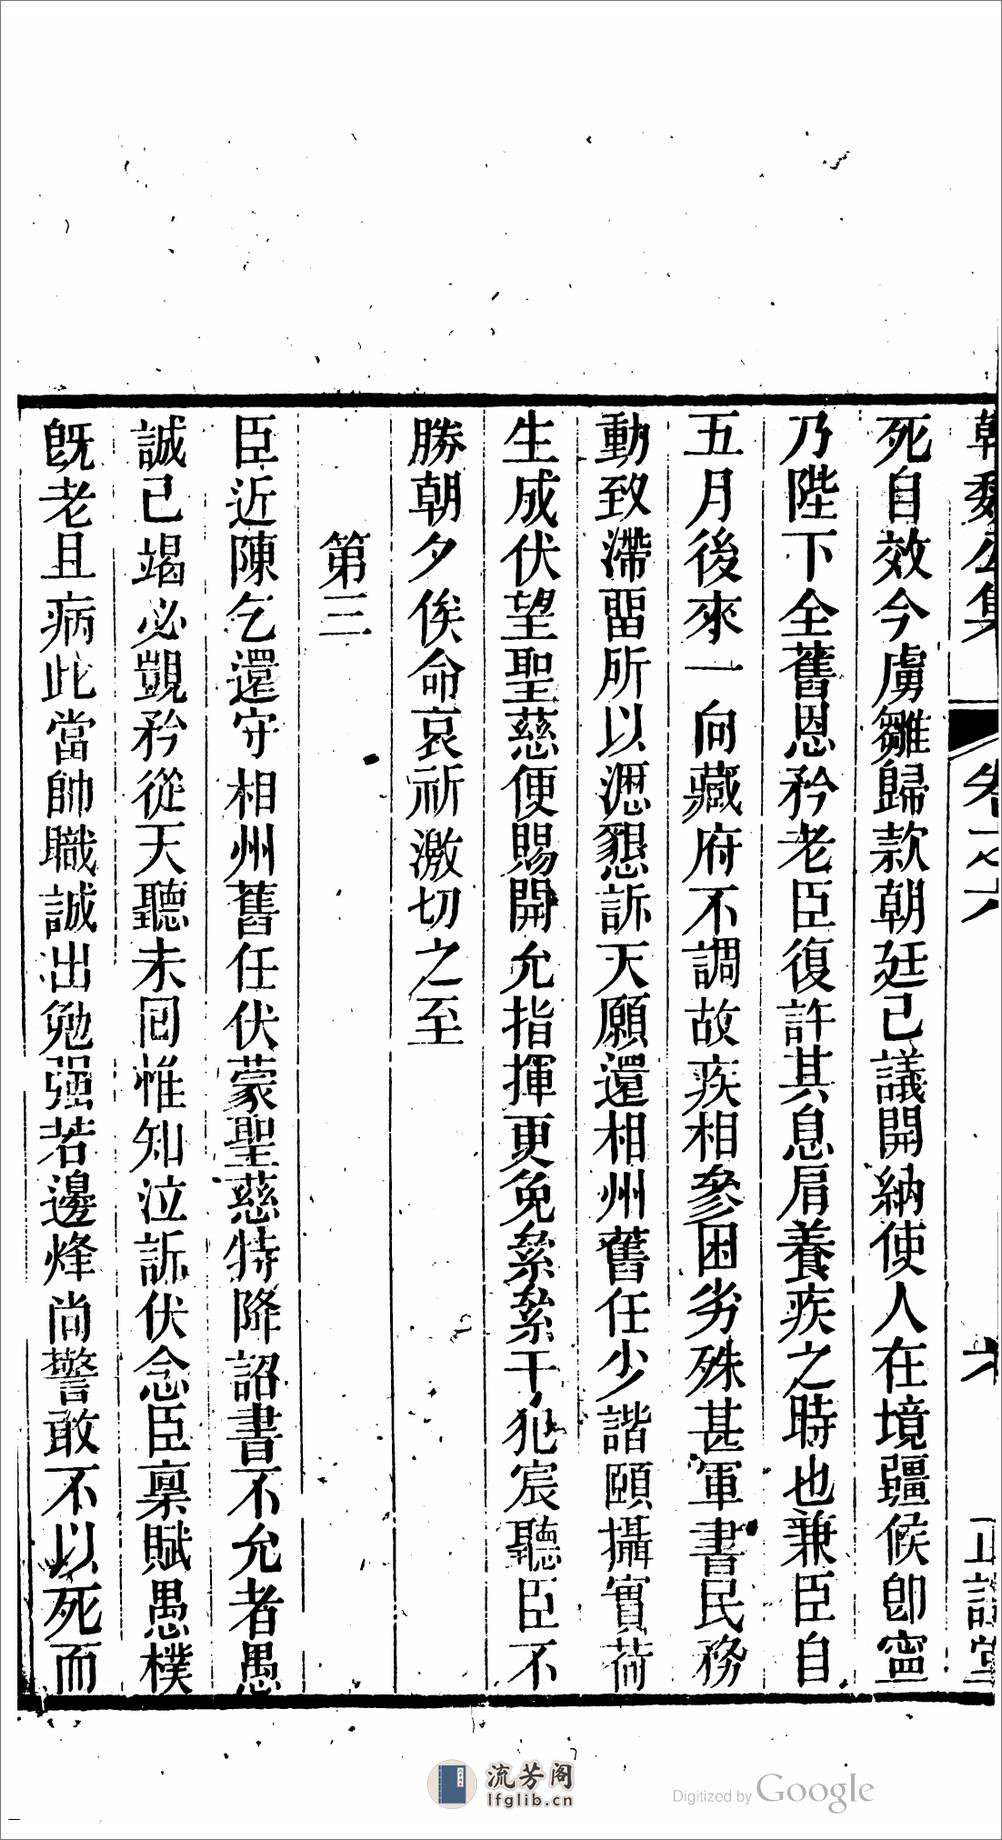 韓魏公集 卷之六 六 正誼堂
死自效今虜雛歸款朝廷已議開納使人在境疆候卽寍
乃陛下全舊恩矜老臣復許其息肩養疾之時也兼臣自
五月後來一向藏府不調故疾相參困劣殊甚軍書民務
動致滯畱所以瀝懇訴天願還相州舊任少諧頤攝實荷
生成伏望聖慈便賜開允指揮更免絫絫干犯宸聽臣不
勝朝夕俟命哀祈激切之至
第三
臣近陳乞還守相州舊任伏蒙聖慈特降詔書不允者愚
誠已竭必覬矜從天聽未囘惟知泣訴伏念臣稟賦愚樸
旣老且病此當帥職誠出勉强若邊烽尚警敢不以死而
流芳阁
lfglib.cn
Digitized by Google